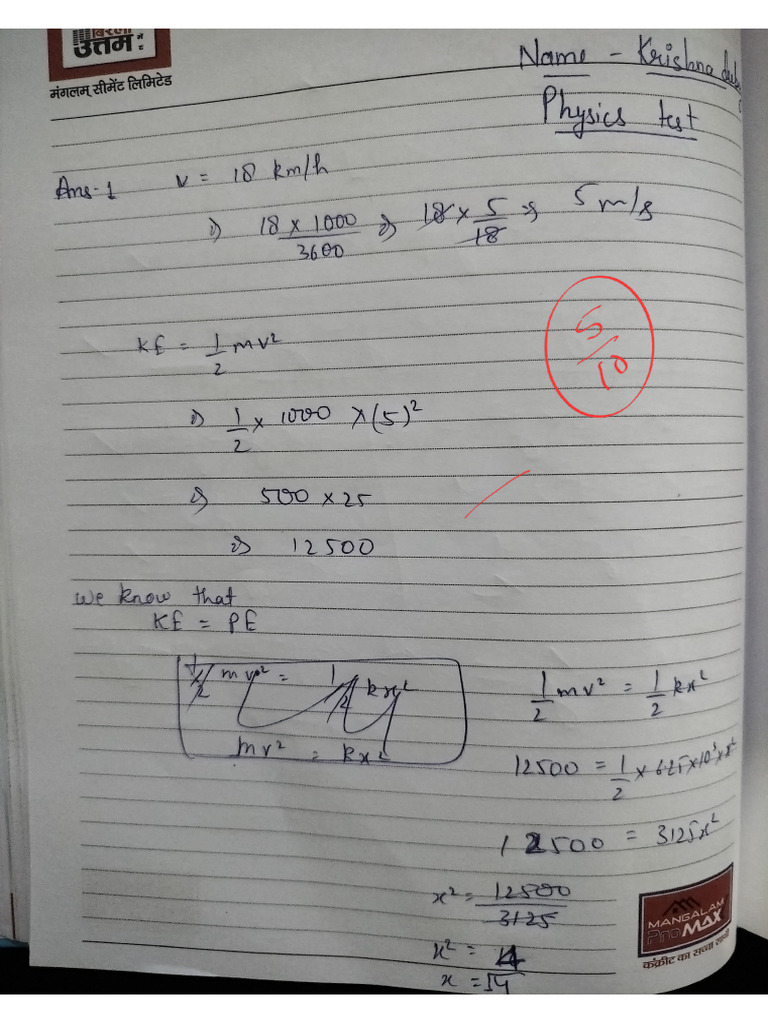 बिरला
उत्तम
मंगलम् सीमेंट लिमिटेड
Name - Krishna
Physics test
Ans-1 v = 18 km/h
⇒ 18 × 1000 / 3600 ⇒ 18 × 5 / 18 ⇒ 5 m/s
5/10
KE = 1/2 mv²
⇒ 1/2 × 1000 × (5)²
⇒ 500 × 25
⇒ 12500
We know that
KE = PE
1/2 mv² = 1/2 kx²
mv² = kx²
1/2 mv² = 1/2 kx²
12500 = 1/2 × 6.25 × 10³ × x²
12500 = 3125x²
x² = 12500 / 3125
x² = 4
x = √4
MANGALAM
ProMAX
कंक्रीट का सच्चा साथी